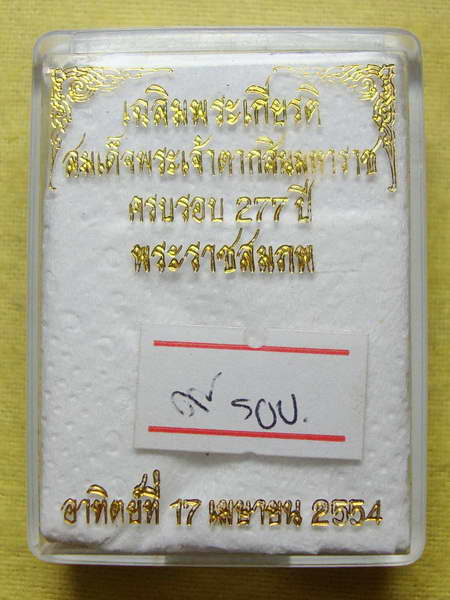 เฉลิมพระเกียรติ
สมเด็จพระเจ้าตากสินมหาราช
ครบรอบ 277 ปี
พระราชสมภพ
รอบ.
อาทิตย์ที่ 17 เมษายน 2554